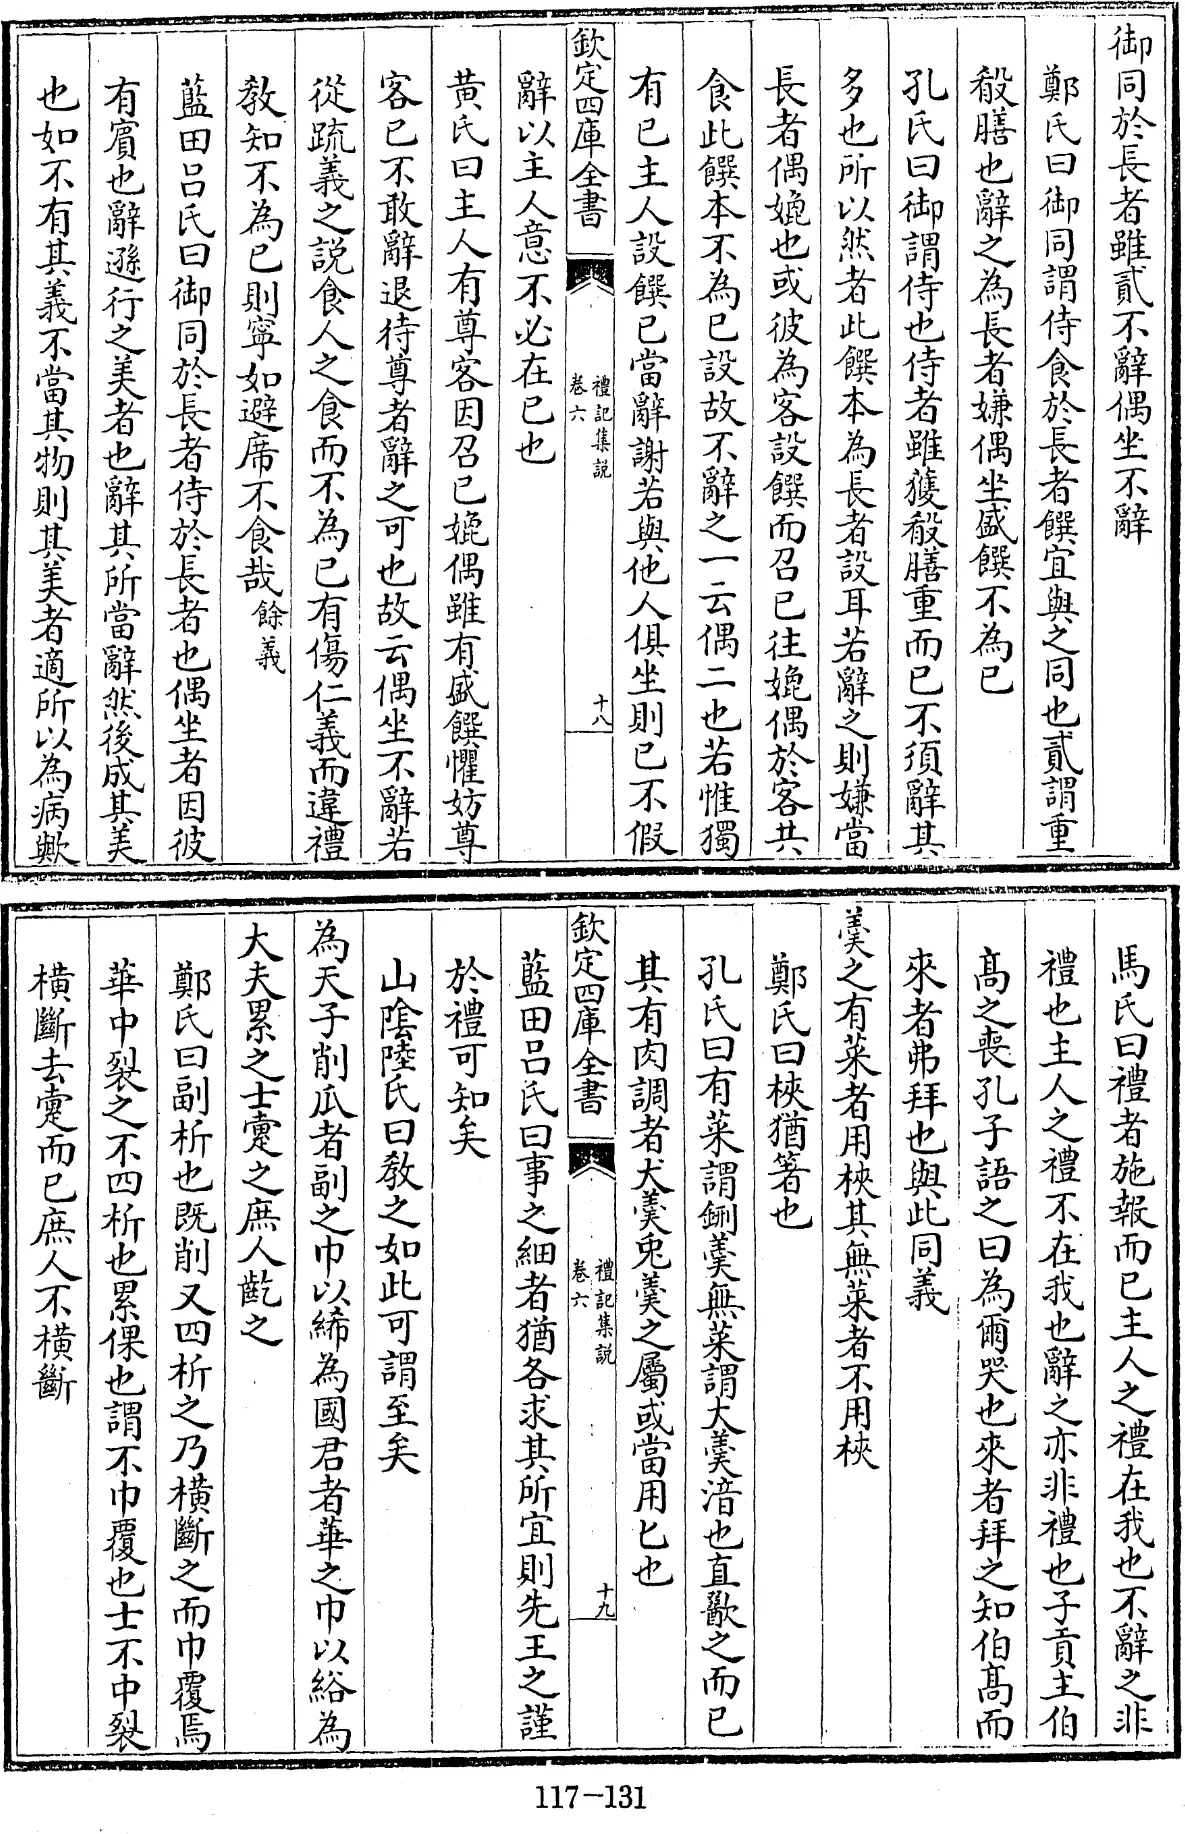 御同於長者雖貳不辭偶坐不辭
鄭氏曰御同謂侍食於長者饌宜與之同也貳謂重
殽膳也辭之為長者嫌偶坐盛饌不為已
孔氏曰御謂侍也侍者雖獲殽膳重而已不須辭其
多也所以然者此饌本為長者設耳若辭之則嫌當
長者偶媲也或彼為客設饌而召已往媲偶於客共
食此饌本不為已設故不辭之一云偶二也若惟獨
有已主人設饌已當辭謝若與他人俱坐則已不假
欽定四庫全書
禮記集説
卷六
十八
辭以主人意不必在已也
黄氏曰主人有尊客因召已媲偶雖有盛饌懼妨尊
客已不敢辭退待尊者辭之可也故云偶坐不辭若
從疏義之説食人之食而不為已有傷仁義而違禮
教知不為已則寧如避席不食哉餘義
藍田吕氏曰御同於長者侍於長者也偶坐者因彼
有賓也辭遜行之美者也辭其所當辭然後成其美
也如不有其義不當其物則其美者適所以為病歟
馬氏曰禮者施報而已主人之禮在我也不辭之非
禮也主人之禮不在我也辭之亦非禮也子貢主伯
髙之喪孔子語之曰為爾哭也來者拜之知伯髙而
來者弗拜也與此同義
羮之有菜者用梜其無菜者不用梜
鄭氏曰梜猶箸也
孔氏曰有菜謂鉶羮無菜謂大羮湆也直歠之而已
其有肉調者犬羮兎羮之屬或當用匕也
欽定四庫全書
禮記集説
卷六
十九
藍田吕氏曰事之細者猶各求其所宜則先王之謹
於禮可知矣
山隂陸氏曰教之如此可謂至矣
為天子削瓜者副之巾以絺為國君者華之巾以綌為
大夫累之士疐之庶人齕之
鄭氏曰副析也既削又四析之乃横斷之而巾覆焉
華中裂之不四析也累倮也謂不巾覆也士不中裂
横斷去疐而已庶人不横斷
117-131